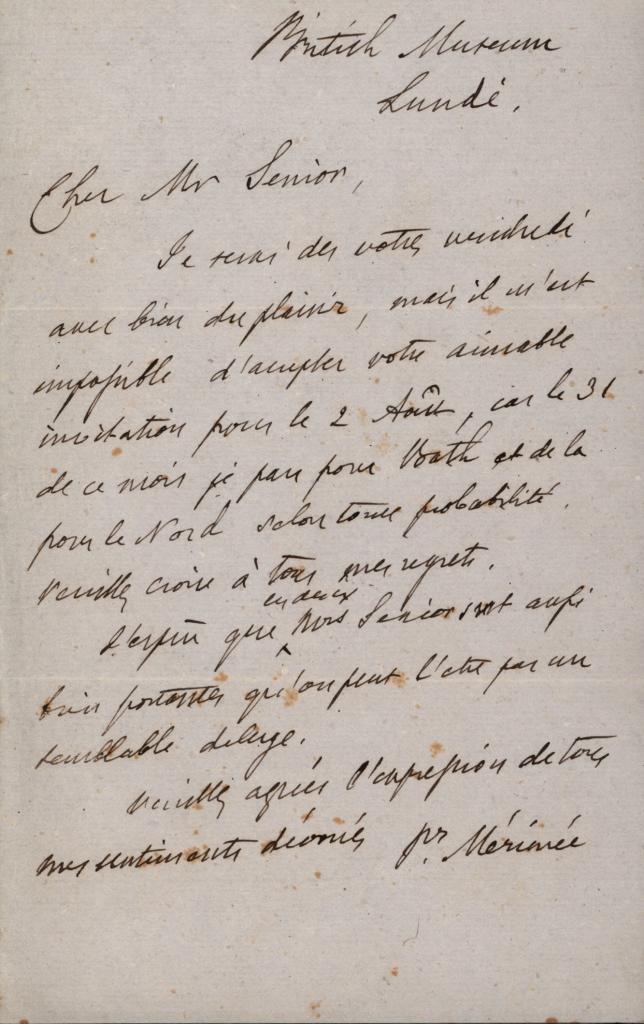 British Museum
Lundi.
Cher Mr Senior,
Je serai des votres vendredi
avec bien du plaisir, mais il m'est
impossible d'accepter votre aimable
invitation pour le 2 Août, car le 31
de ce mois je pars pour Bath et de la
pour le Nord selon toute probabilité.
Veuillez croire à tous mes regrets.
J'espère que ces deux Mrs Senior sont aussi
bien portantes qu'on peut l'etre par un
semblable deluge.
Veuillez agréer l'expression de tous
mes sentiments dévoués pr. Mérimée